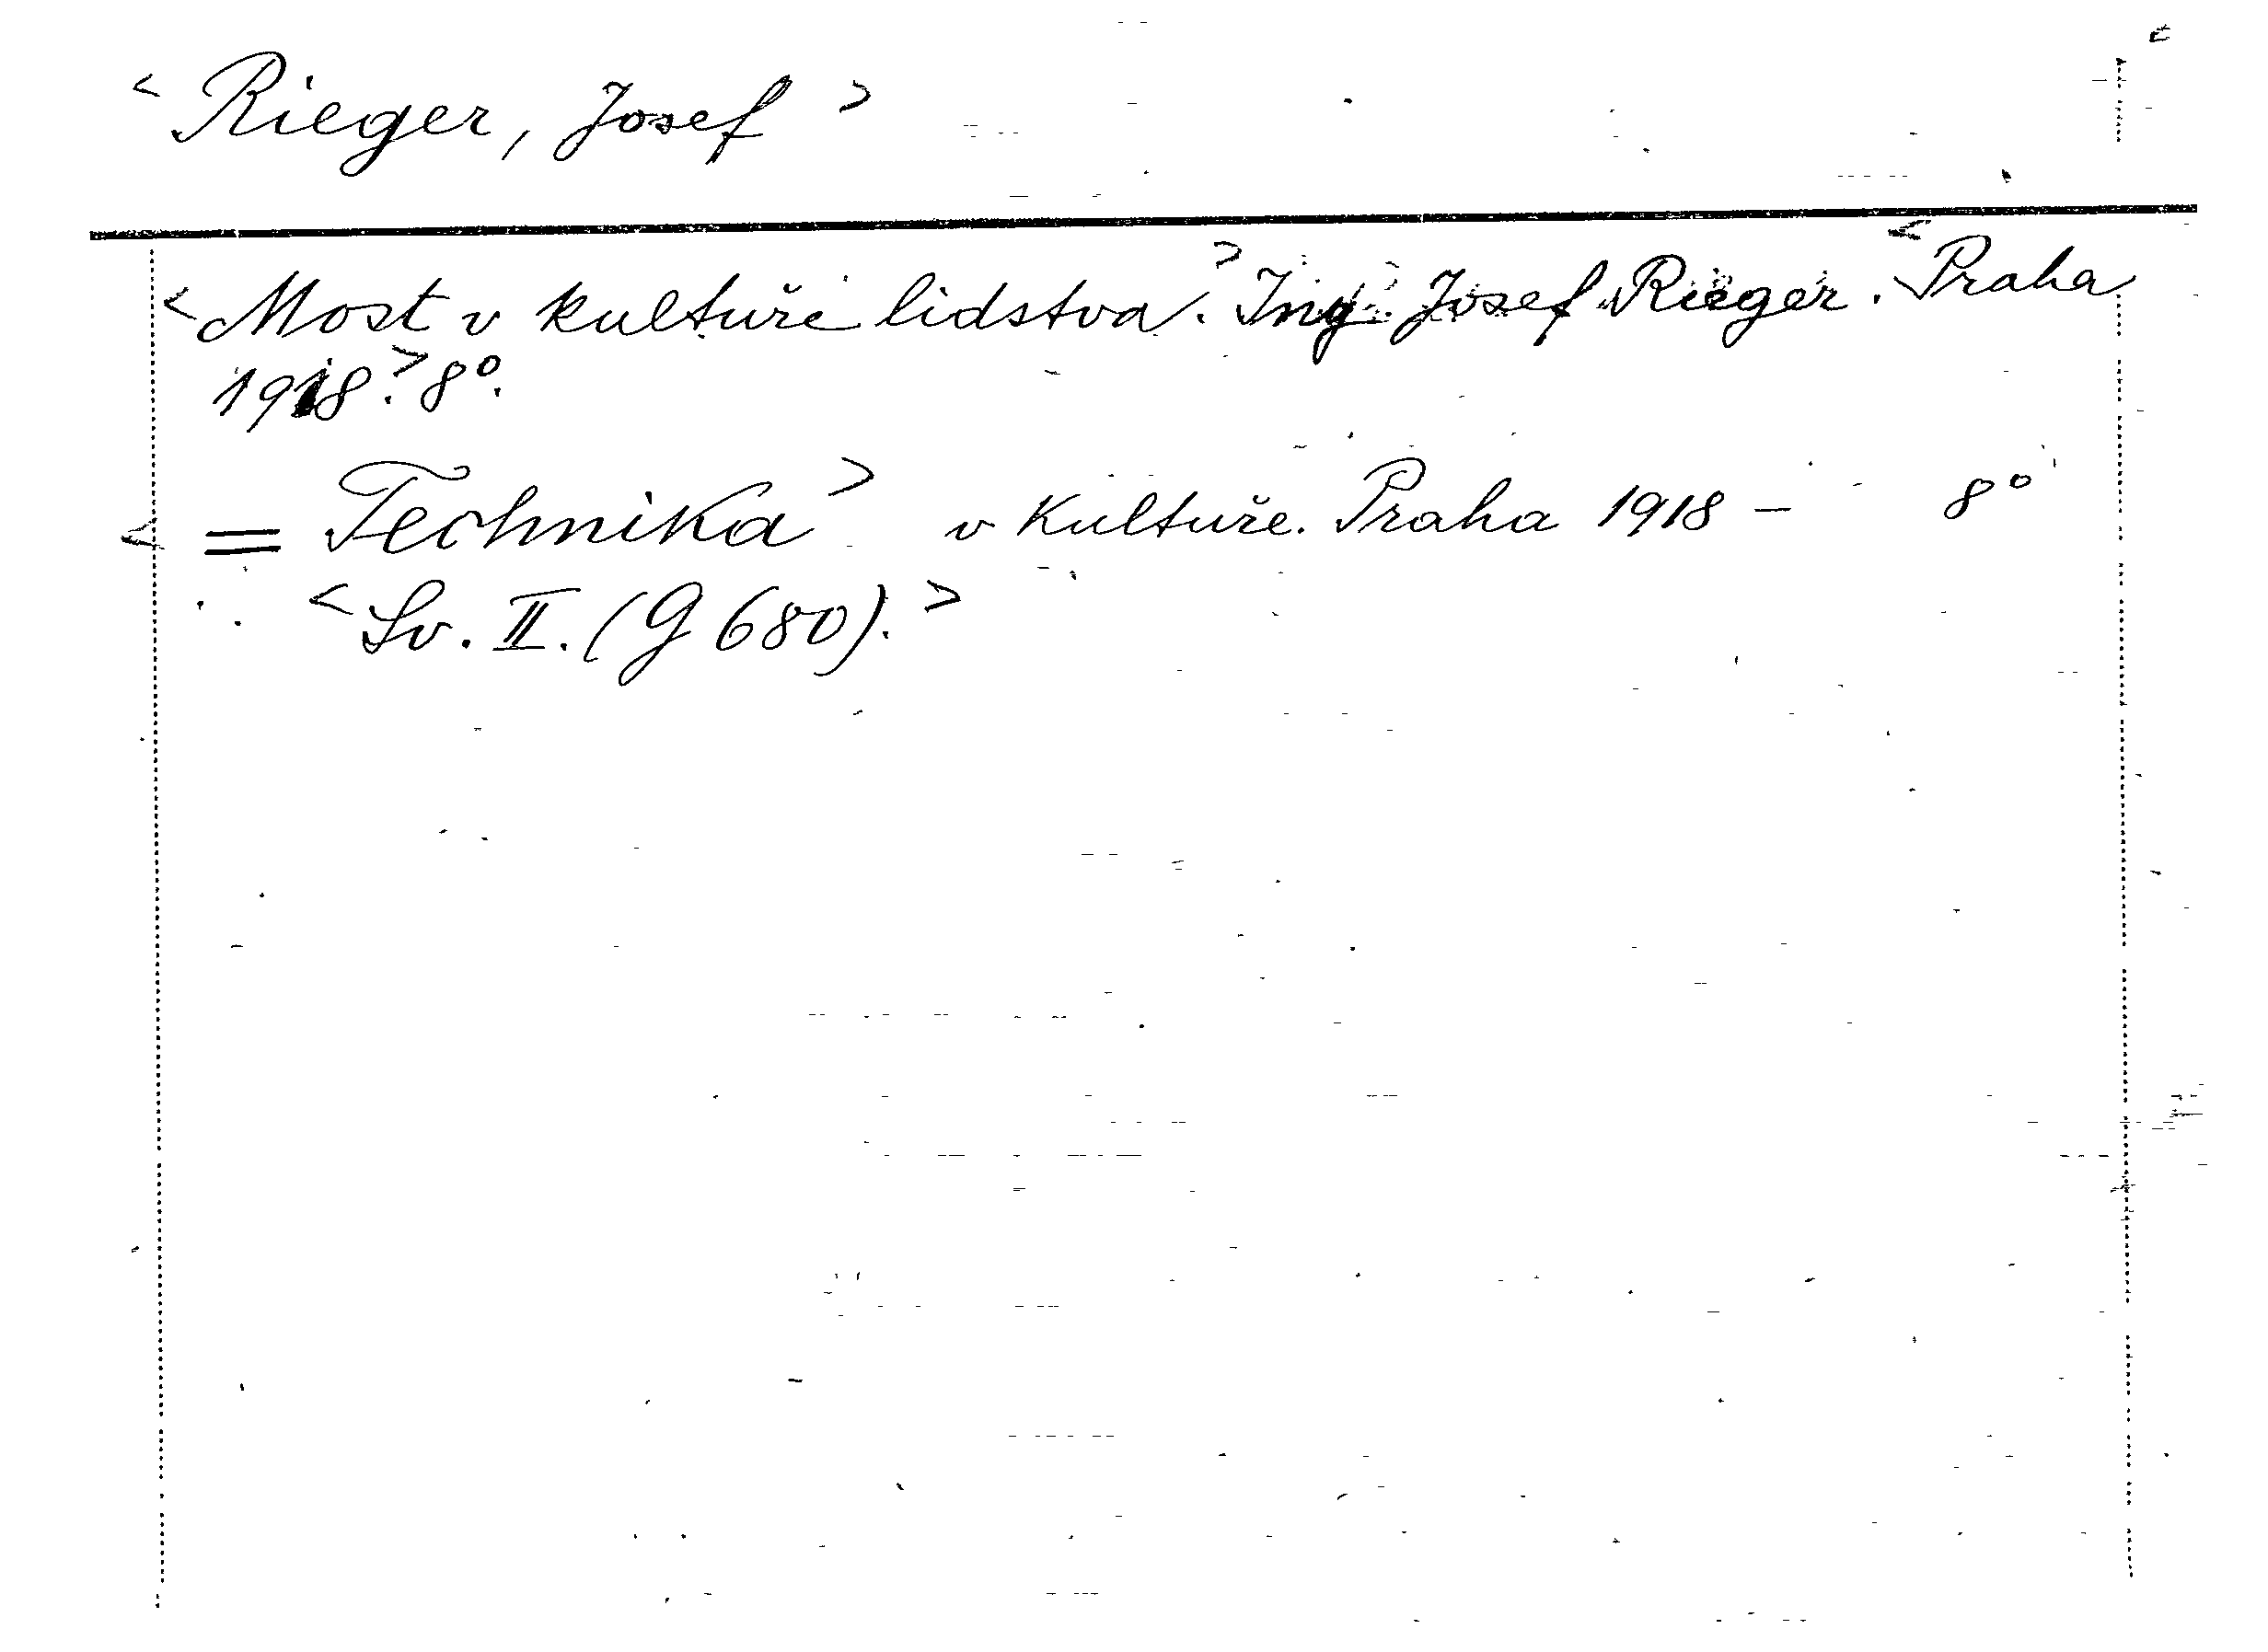 < Rieger, Josef >
< Most v kultuře lidstva. > Ing. Josef Rieger. < Praha
1918. > 8°.
< = Technika > v kultuře. Praha 1918 – 8°
< Sv. II. (G 680). >